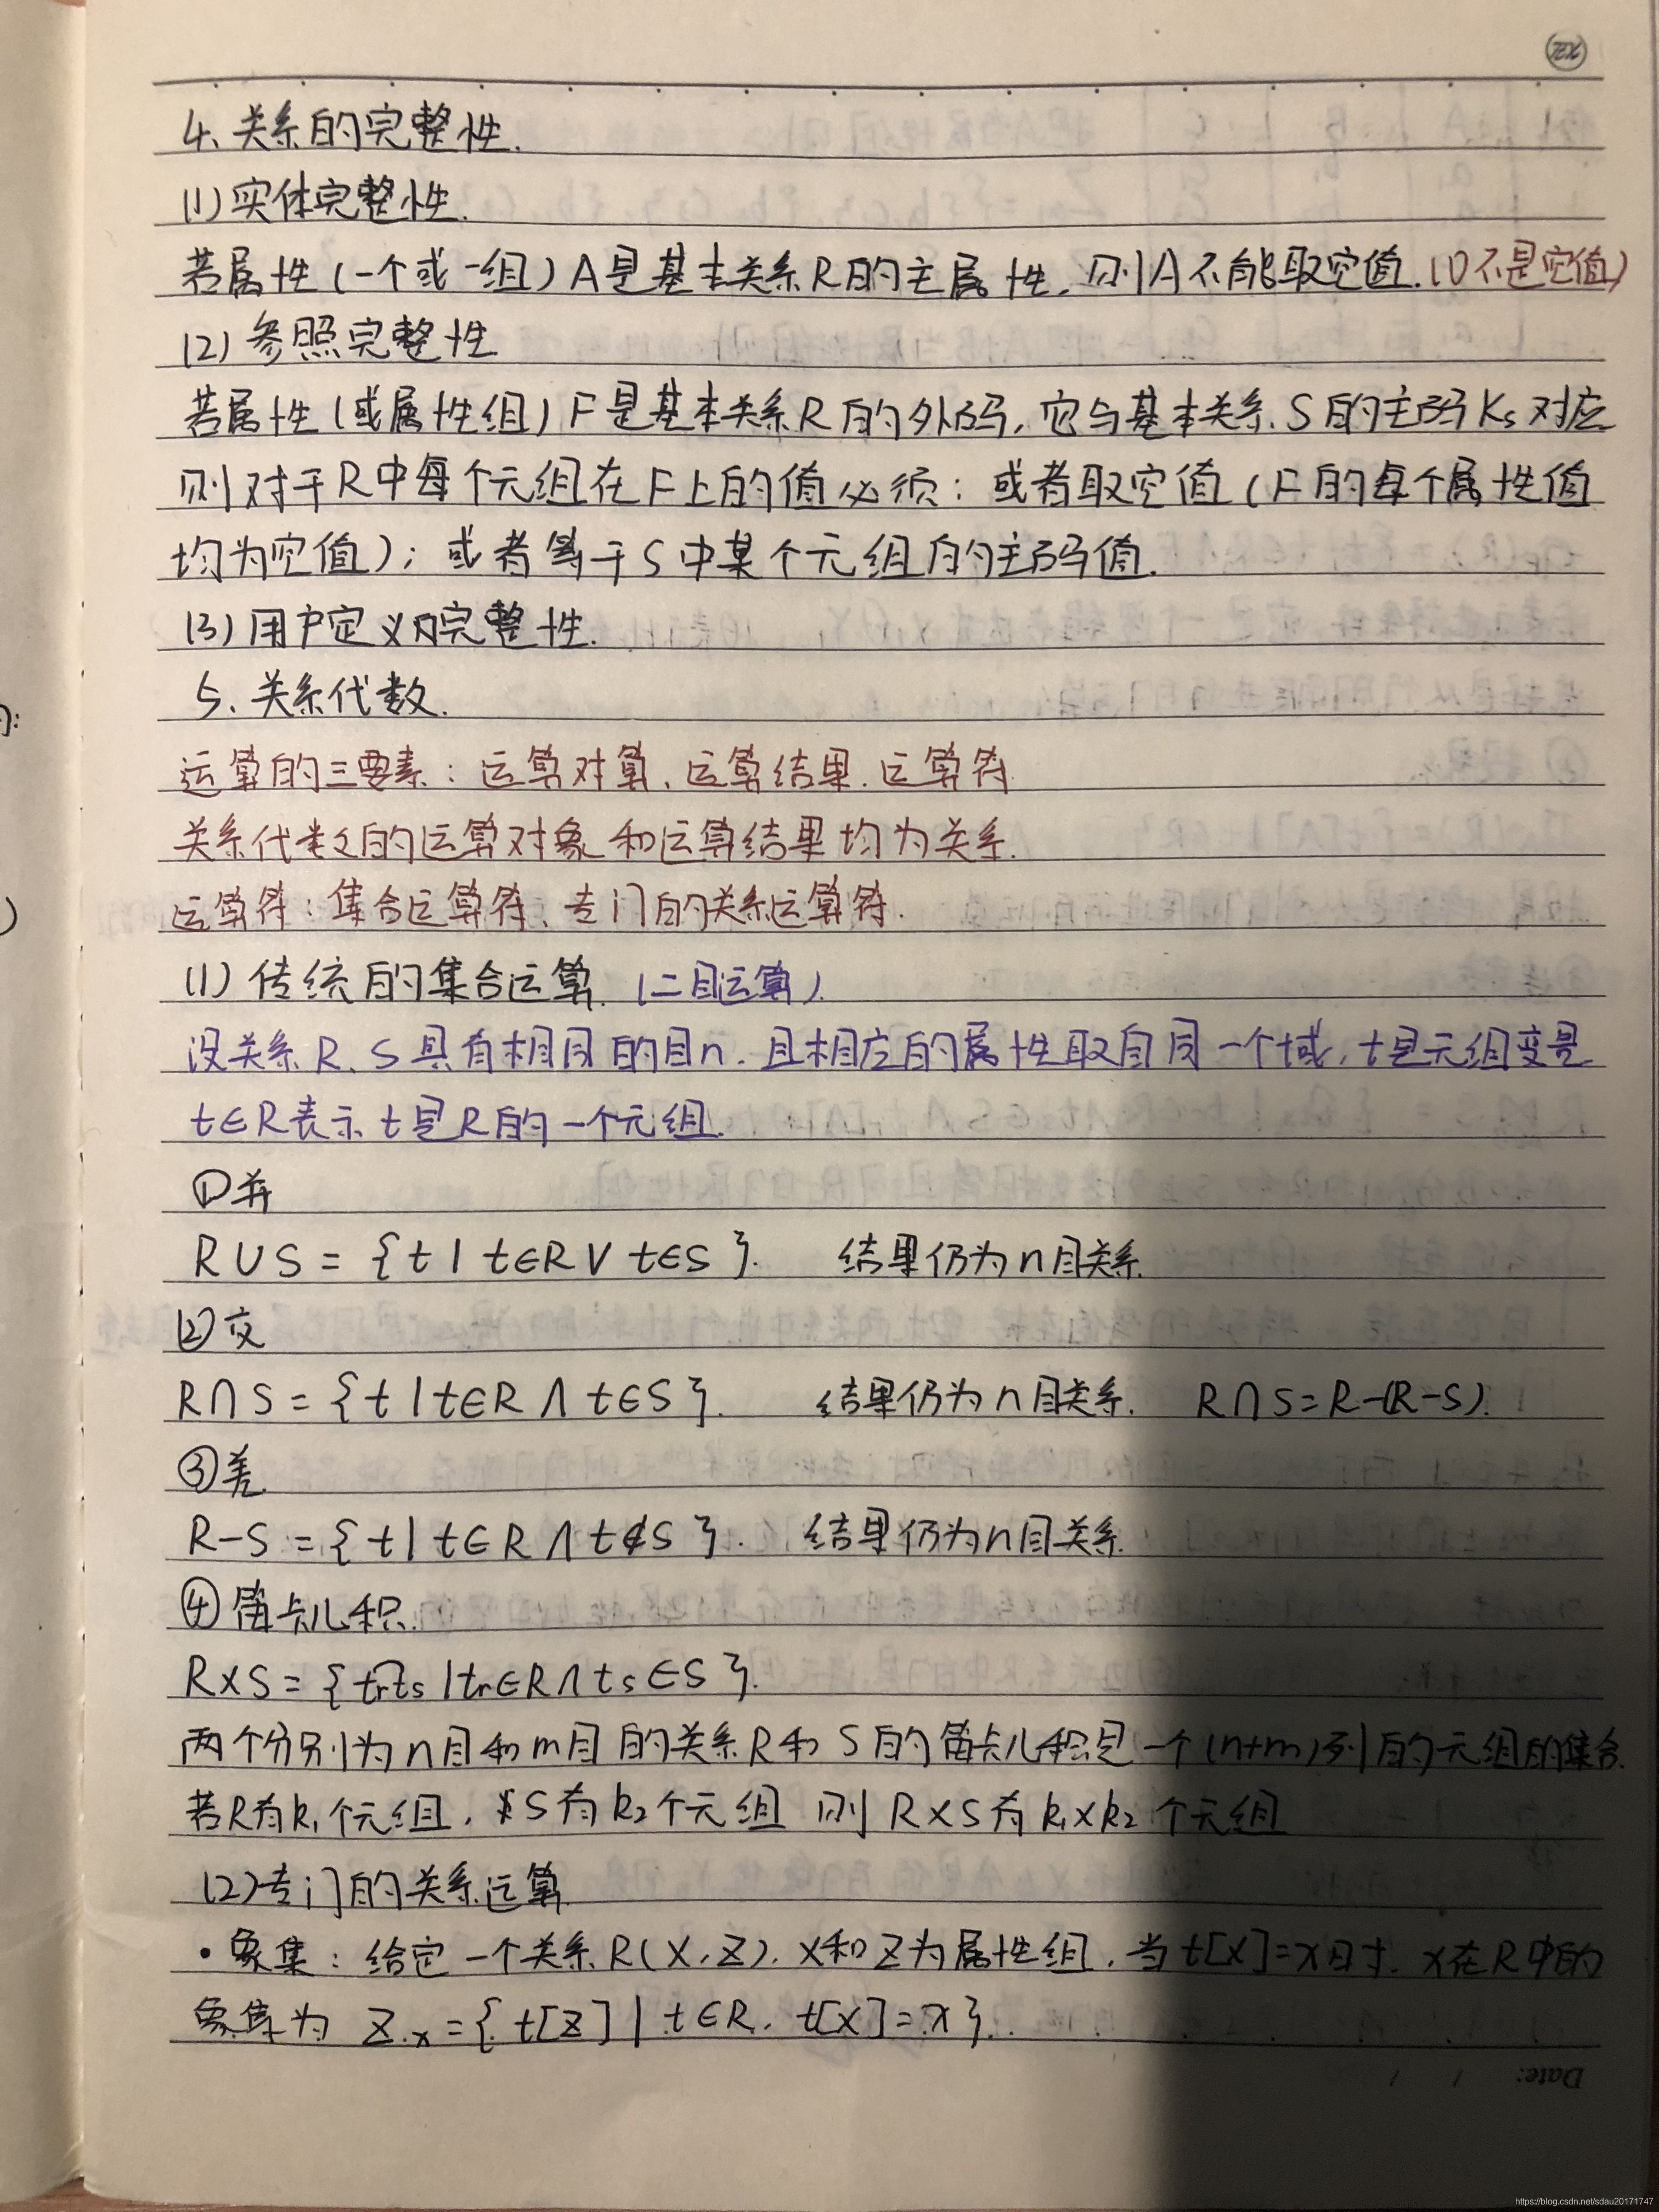 4、关系的完整性.
(1)实体完整性.
若属性(一个或一组)A是基本关系R的主属性,则A不能取空值.(0不是空值)
(2)参照完整性
若属性(或属性组)F是基本关系R的外码,它与基本关系S的主码Ks对应
则对于R中每个元组在F上的值必须:或者取空值(F的每个属性值
均为空值);或者等于S中某个元组的主码值.
(3)用户定义的完整性.
5、关系代数.
运算的三要素:运算对算、运算结果.运算符
关系代数的运算对象和运算结果均为关系.
运算符:集合运算符、专门的关系运算符.
(1)传统的集合运算.(二目运算).
设关系R、S具有相同的目n.且相应的属性取自同一个域,t是元组变量
t∈R表示t是R的一个元组.
①并
R∪S={t|t∈R∨t∈S}. 结果仍为n目关系.
②交
R∩S={t|t∈R∧t∈S}. 结果仍为n目关系. R∩S=R-(R-S).
③差
R-S={t|t∈R∧t∉S}. 结果仍为n目关系.
④笛卡儿积.
R×S={trts|tr∈R∧ts∈S}.
两个分别为n目和m目的关系R和S的笛卡儿积是一个(n+m)列的元组的集合.
若R有k1个元组,S有k2个元组 则R×S有k1×k2个元组
(2)专门的关系运算
•象集:给定一个关系R(X,Z).X和Z为属性组,当t[X]=x时.x在R中的
象集为 Zx={t[Z]|t∈R,t[X]=x}.
Date:
https://blog.csdn.net/sdau20171747